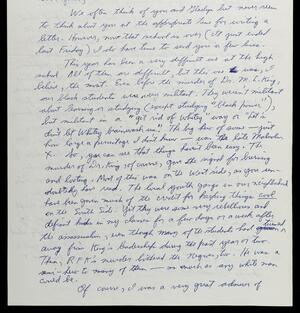 We often think of you and Gladys but never seem
to think about you at the appropriate time for writing a
letter. However, now that school is over (it just ended
last Friday) I do have time to send you a few lines.
This year has been a very difficult one at the high
school. All of them are difficult, but this one was, I
believe, the most. Even before the murder of Dr. M. L. King,
our black students were very militant. They weren't militant
about learning or studying (except studying "black power"),
but militant in a "get rid of whitey" way or "let's
don't let Whitey brainwash us." The big hero of some - just
how large a percentage I don't know - was the late Malcolm
X. So, you can see that things hadn't been easy. The
murder of Dr. King, of course, gave the signal for burning
and looting. Most of this was on the West side, as you
doubtless read. The local youth gangs in our neighborhood
have been given much of the credit for keeping things cool
on the South Side. Yet they were very rebellious and
defiant in my classes for a few days or a week after
the assassination, even though many of the students had turned
away from King's leadership during the past year or two.
Then, R.F.K.'s murder the Negroes, too. He was a
semi-hero to many of them - as much as any white man
could be.
Of course, I was a very great admirer of